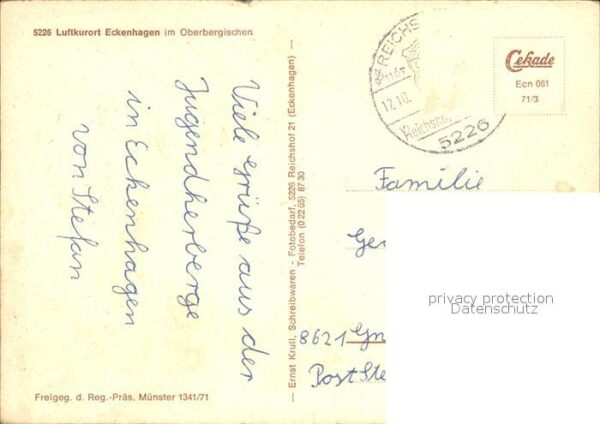 5226 Luftkurort Eckenhagen im Oberbergischen
Viele Grüße aus der
Jugendherberge
in Eckenhagen
von Stefan
— Ernst Krull, Schreibwaren - Fotobedarf, 5226 Reichshof 21 (Eckenhagen) —
Telefon (0 22 65) 87 30
REICHS
-16
17.10.
Reichsho
5226
Cekade
Ecn 061
71/3
Familie
Ge
privacy protection
Datenschutz
8621
Post
Freigeg. d. Reg.-Präs. Münster 1341/71